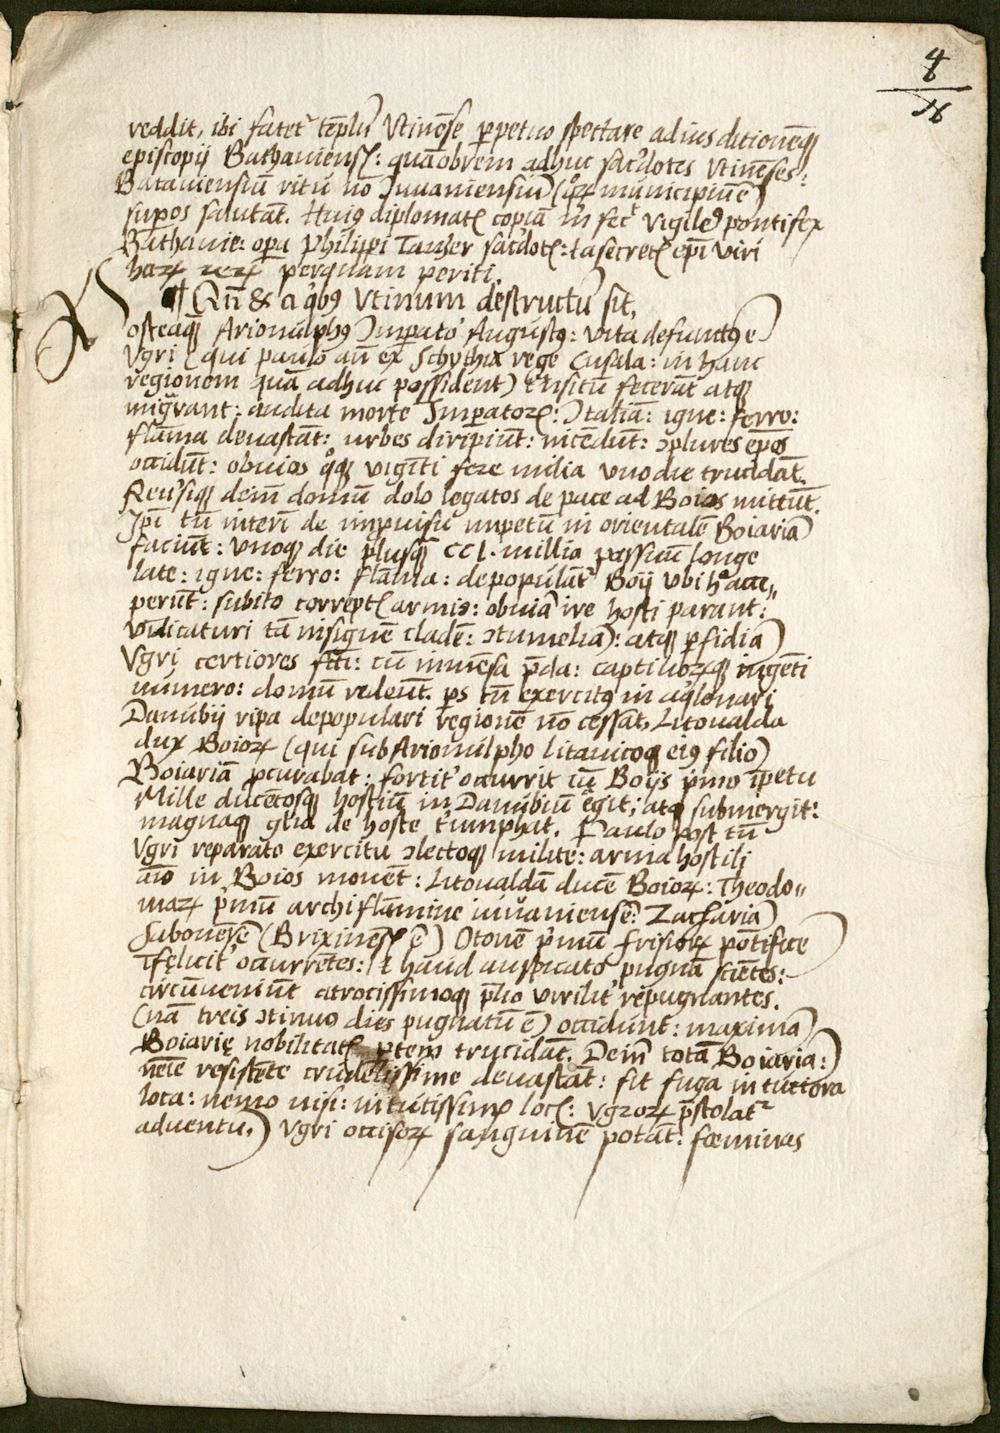 4
reddit, ibi fatet' tēplū Vtinēse perpetuo spectare ad ius ditionēq3
episcopij Bathauiens: quāobrem adhuc sac'dotes Vtinēses:
Batauiensiū ritu nō Iuuauiensiū municipiū ē)
sup̄os salutāt. Hui9 diplomat copiā m̄ fec't pontifex
Bathauie: opa Philippi sac'dot: a secret ep̄i viri
harꝝ rerꝝ perquam periti.
¶ Qn̄ & a qb9 Vtinum destructū sit,
Posteaq̄ Arionulph9 Imp̄ato' August9: vita defunct9 ē
Vgri (qui paulo an̄ ex Schythia rege Cusala: in hanc
regionem quā adhuc possident) trāsitū fecerāt atq3
migrant: audita morte Imp̄ator: Italiā: igne: ferro:
flāma deuastāt: urbes diripiūt: incēdūt: ɔplures ep̄os
occidūt: obuios qq3 viginti fere milia vno die trucidāt.
Reu'siq3 dein̄ domū dolo legatos de pace ad Boios mittūt.
Ip̄i tn̄ interī de impuisu impetū in orientalē Boiariā
faciūt: vnoq3 die plusq̄ CCL. millia passuū longe
late: igne: ferro: flāma: depopulāt' Boij vbi h° acce„
perūt: subito corrept armis: obuiā ire hosti parant:
vīdicaturi tā insignē cladē: ɔtumeliā: atq3 p̄fidiā)
Vgri certiores fcti: cū immēsa p̄da: captiuorꝝq3 ingēti
numero: domū redeūt. ps tn̄ exercit9 in aqlonari
Danubij ripa depopulari regionē nō cessāt, Litoualda
dux Boiorꝝ (qui sub Ariomulpho ei9 filio)
Boiariā pcurabat: fortit' occurrit cū Boijs p'mo īpetu
Mille ducētosq3 hostiū in Danubiū ēgit; atq3 submergit:
magnaq3 glia de hoste t'iumphat. Paulo post tn̄
Vgri reparato exercitu ɔlectoq3 milite: arma hostilj
aīo in Boios mouēt: Litoualdā ducē Boiorꝝ: Theodo„
marꝝ p'mū archiflāmine iuuauiensē: Zachariā
Sabonēsē (Brixinēs ē) Otonē p'mū Frisiorꝝ pōtifice
īfelicit' occurrētes: & haud auspicato pugnā sciētes:
circūueniūt atrocissimoq3 p̄lio virilit' repugnantes.
(nā treis ɔtinuo dies pugnatū ē) occidunt: maximā
Boiarię nobilitat ptem trucidāt. Dein̄ totā Boiariā:
neīe resistēte crudelissime deuastāt: fit fuga in tuctiora
loca: nemo nisi: in tutissim loc: Vgrorꝝ p̄stolat'
aduentu,) Vgri occisorꝝ sanguinē potāt: fœminas